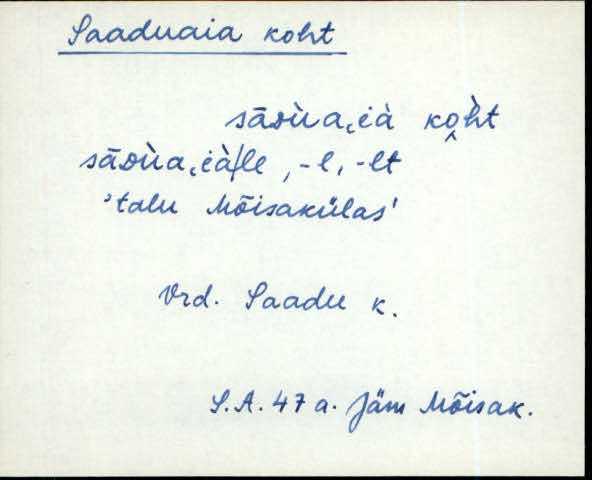 Saaduaia koht
sāᴅùa˛ià ko̭h̀t
sāᴅùa˛ià/le, -l, -lt
'talu Mõisakülas'
Vrd. Saadu k.
S.A. 47 a. Jäm Mõisak.